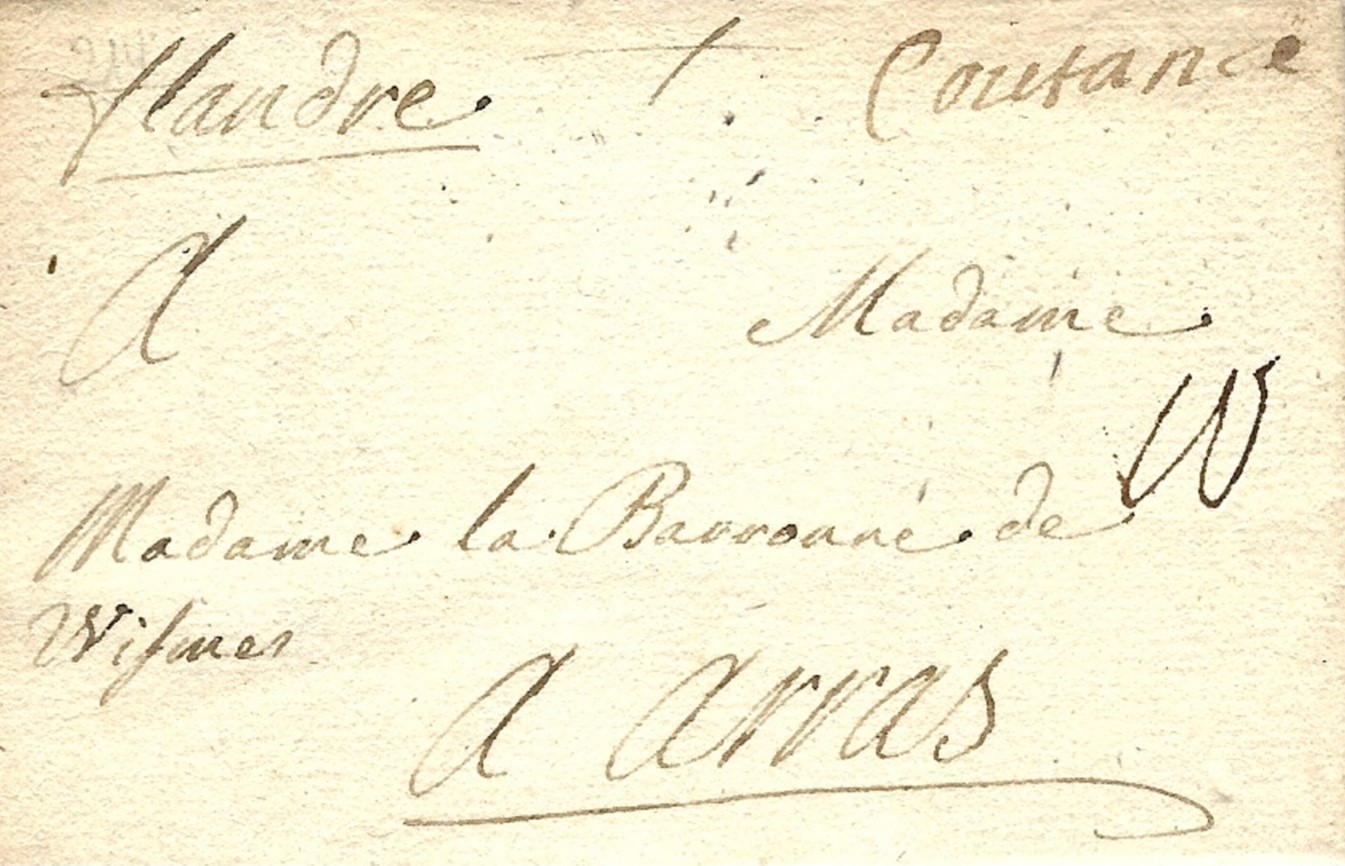 flandre. Coutance
A Madame
Madame la Baronne de
Wismes
A Arras